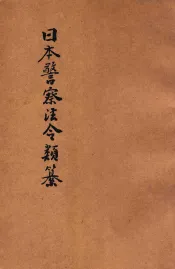 日本警察法令類纂